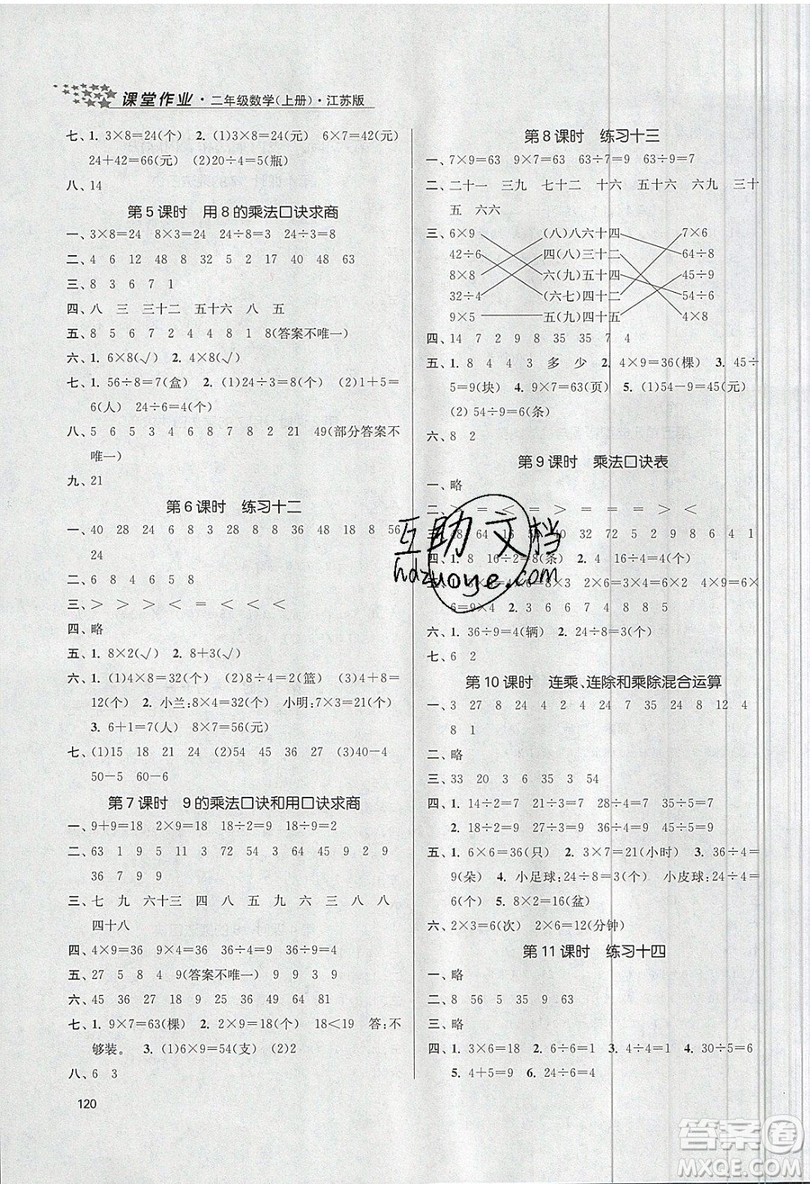 课堂作业·二年级数学(上册)·江苏版
七、1. 3×8=24(个) 2. (1)3×8=24(元) 6×7=42(元)
24+42=66(元) (2)20÷4=5(瓶)
八、14
第5课时 用8的乘法口诀求商
一、3×8=24 8×3=24 24÷8=3 24÷3=8
二、24 24 12 48 32 5 5 54 48 63
三、3 8 3 6 7 1
四、八 三 三十二 五十六 八 五
五、8 5 6 7 2 4 4 8 1 8(答案不唯一)
六、1. 6×8(√) 2. 4×8(√)
七、1. 56÷8=7(盒) 2. 24÷8=3(个) 3. (1)1+5=
6(人) 24÷6=4(个)
八、5 6 5 3 4 6 8 7 8 2 21 49(部分答案不
唯一)
九、21
第6课时 练习十二
一、40 28 24 6 8 3 8 8 8 36 48 18 8 56
24
二、6 8 4 6 5 8
三、＞ ＞ ＞ ＞ ＝ ＜ ＝ ＜ ＜
四、略
五、1. 8×2(√) 2. 8×3(√)
六、1. (1)4×8=32(个) (2)8÷4=2(篮) (3)4+8=
12(个) 2. 小兰:8×4=32(个) 小明:7×5=35(个)
3. 6+1=7(人) 7×8=56(元)
七、(1)15 18 21 24 (2)54 45 36 27 (3)40-4
50-5 60-6
第7课时 9的乘法口诀和用口诀求商
一、9+9=18 2×9=18 18÷2=9 18÷9=2
二、63 1 9 5 11 3 8 54 2 24 27 90 9
36
三、七 九 六十三 四 八 五 九 六 九 八 八
四十八
四、4×9=36 9×4=36 36÷4=9 36÷9=4
五、27 5 8 4 9(答案不唯一) 9 9 9 3 9
六、45 36 27 18 9 36 45 54 63 72 81
七、1. 9×7=63(棵) 2. 2×9=18(个) 18＜19 答:不
够装。 3. (1)6×9=54(支) (2)2
八、6 3
120
第8课时 练习十三
一、7×9=63 9×7=63 63÷7=9 63÷9=7
二、二十一 三九 七十二 四九 五六 八八 三十
五 六六
三、6×9 (八)八六十四 7×6
42÷6 四(八)三十二 64÷8
8×8 六(九)五十四 45÷9
32÷4 (六七)四十二 54÷6
9×5 五(九)四十五 4×8
四、14 7 2 9 8 35 35 7 4
五、1. 8 4 4 3 多 少 2. 4×9=36(棵) 3. 45÷
5=9(块) 4. 9×7=63(页) 5. (1)54-9=45(元)
(2) 54÷9=6(条)
六、8 2
第9课时 乘法口诀表
一、略
四、1. 8 2. 16÷2=8(条)
六、1. 36÷9=4(辆)
七、6 2
第10课时 连乘、连除和乘除混合运算
一、3 27 8 24 4 2 4 24 7 27 36 12 4
8 1
二、略
三、33 20 3 6 35 3 54
四、1. 14÷2=7 21÷7=3 28÷4=7 35÷5=7
2. 18÷2=9 27÷3=9 36÷4=9 45÷5=9
五、1. 6×6=36(只) 2. 3×7=21(小时) 3. 36÷4=
9(朵) 4. 小足球:24÷8=3(个) 小皮球:24÷4=
6(个) 5. 8×2=16(盆)
六、2×3=6(次) 2×6=12(分钟)
第11课时 练习十四
一、略
二、8 56 35 5 9 63
三、略
四、1. 3×6=18 2. 6÷6=1 3. 4×7=28 4. 30÷5=6
5. 4×9=36 6. 54÷9=6
互助文档
hdzuoye.com
答案圈
MXQE.COM